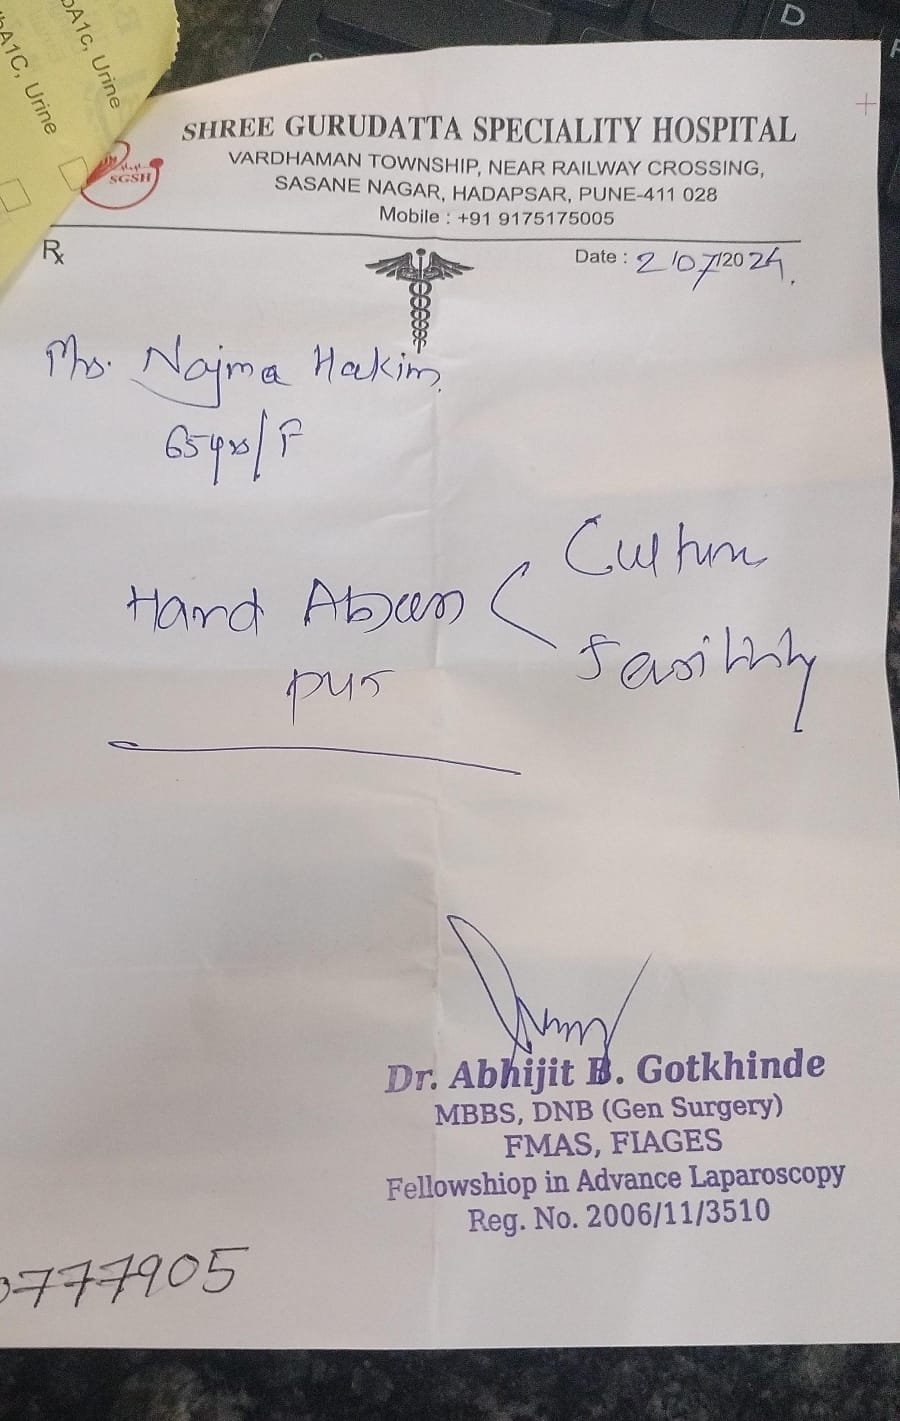 bA1C, Urine
bA1c, Urine
D
SHREE GURUDATTA SPECIALITY HOSPITAL
VARDHAMAN TOWNSHIP, NEAR RAILWAY CROSSING,
SASANE NAGAR, HADAPSAR, PUNE-411 028
Mobile : +91 9175175005
SGSH
Rx
Date : 2/07/2024.
Mrs. Najma Hakim
65yrs/F
Hand Abscess < Culture
Sensitivity
pus
Dr. Abhijit B. Gotkhinde
MBBS, DNB (Gen Surgery)
FMAS, FIAGES
Fellowshiop in Advance Laparoscopy
Reg. No. 2006/11/3510
777905